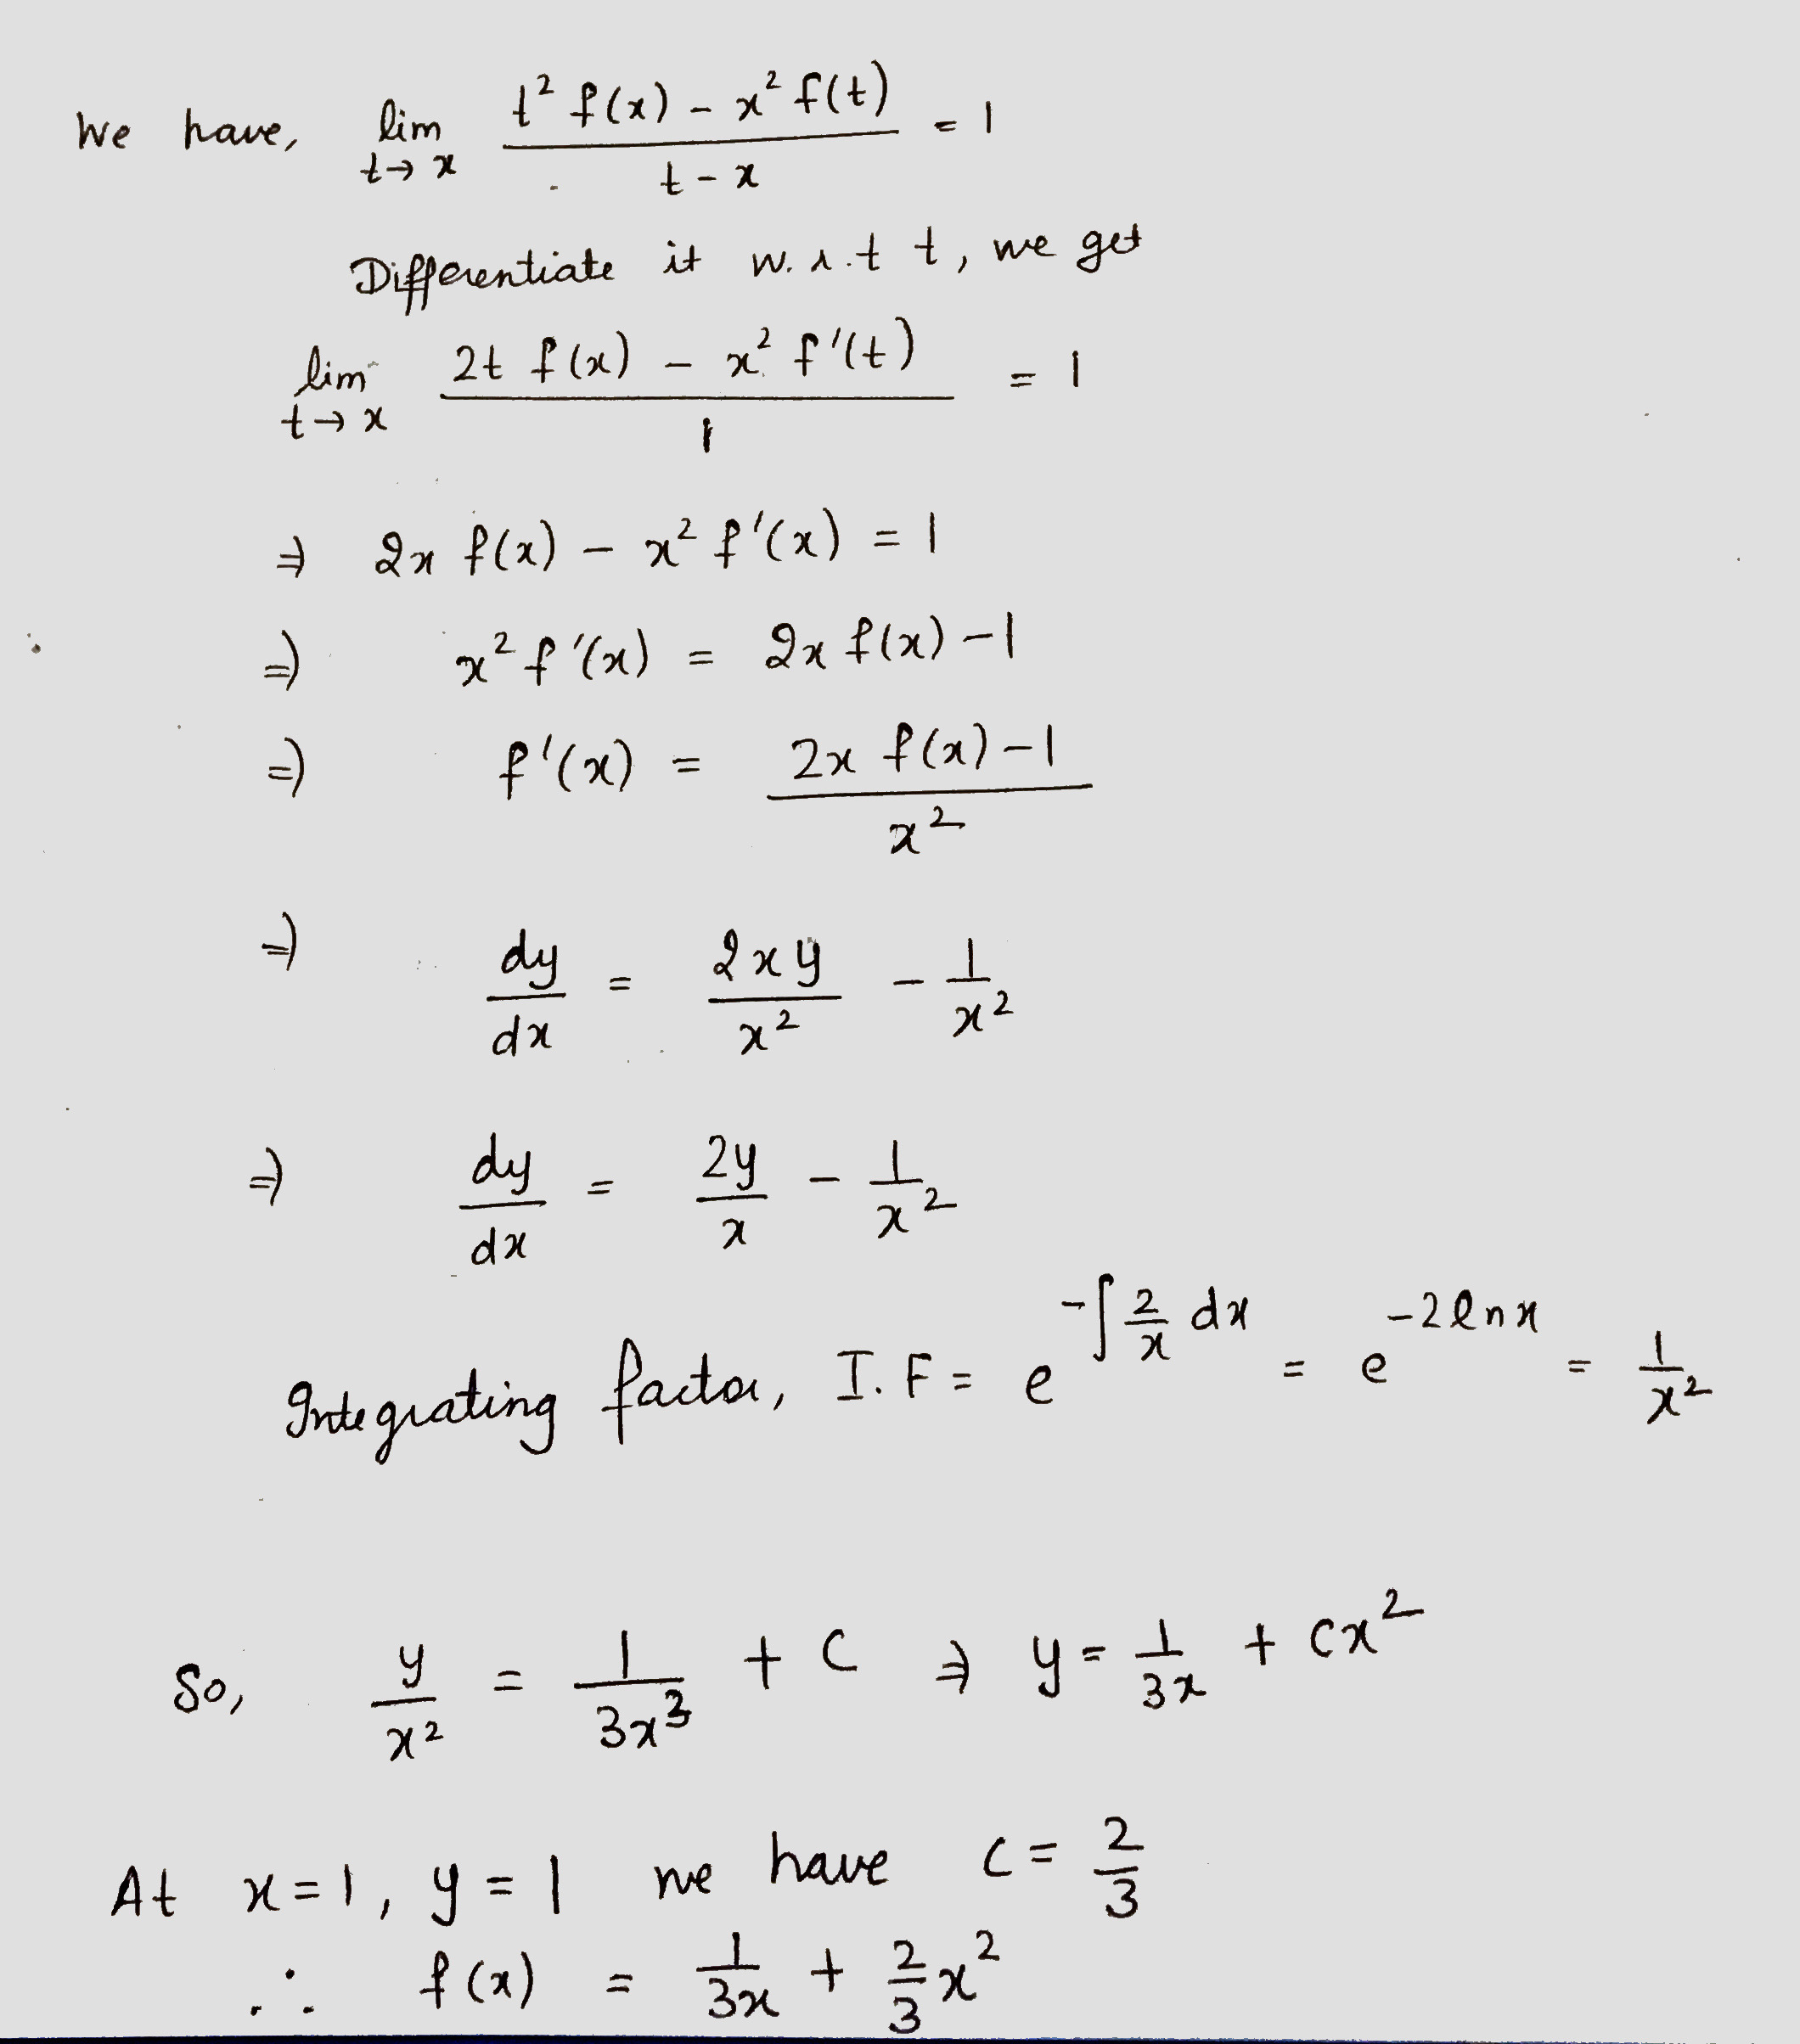 We have, lim t→x (t² f(x) - x² f(t)) / (t - x) = 1
Differentiate it w.r.t t, we get
lim t→x (2t f(x) - x² f'(t)) / 1 = 1
⇒ 2x f(x) - x² f'(x) = 1
⇒ x² f'(x) = 2x f(x) - 1
⇒ f'(x) = (2x f(x) - 1) / x²
⇒ dy/dx = 2xy/x² - 1/x²
⇒ dy/dx = 2y/x - 1/x²
Integrating factor, I.F = e^(-∫ 2/x dx) = e^(-2 ln x) = 1/x²
So, y/x² = 1/(3x³) + C ⇒ y = 1/(3x) + Cx²
At x = 1, y = 1 we have C = 2/3
∴ f(x) = 1/(3x) + 2/3 x²